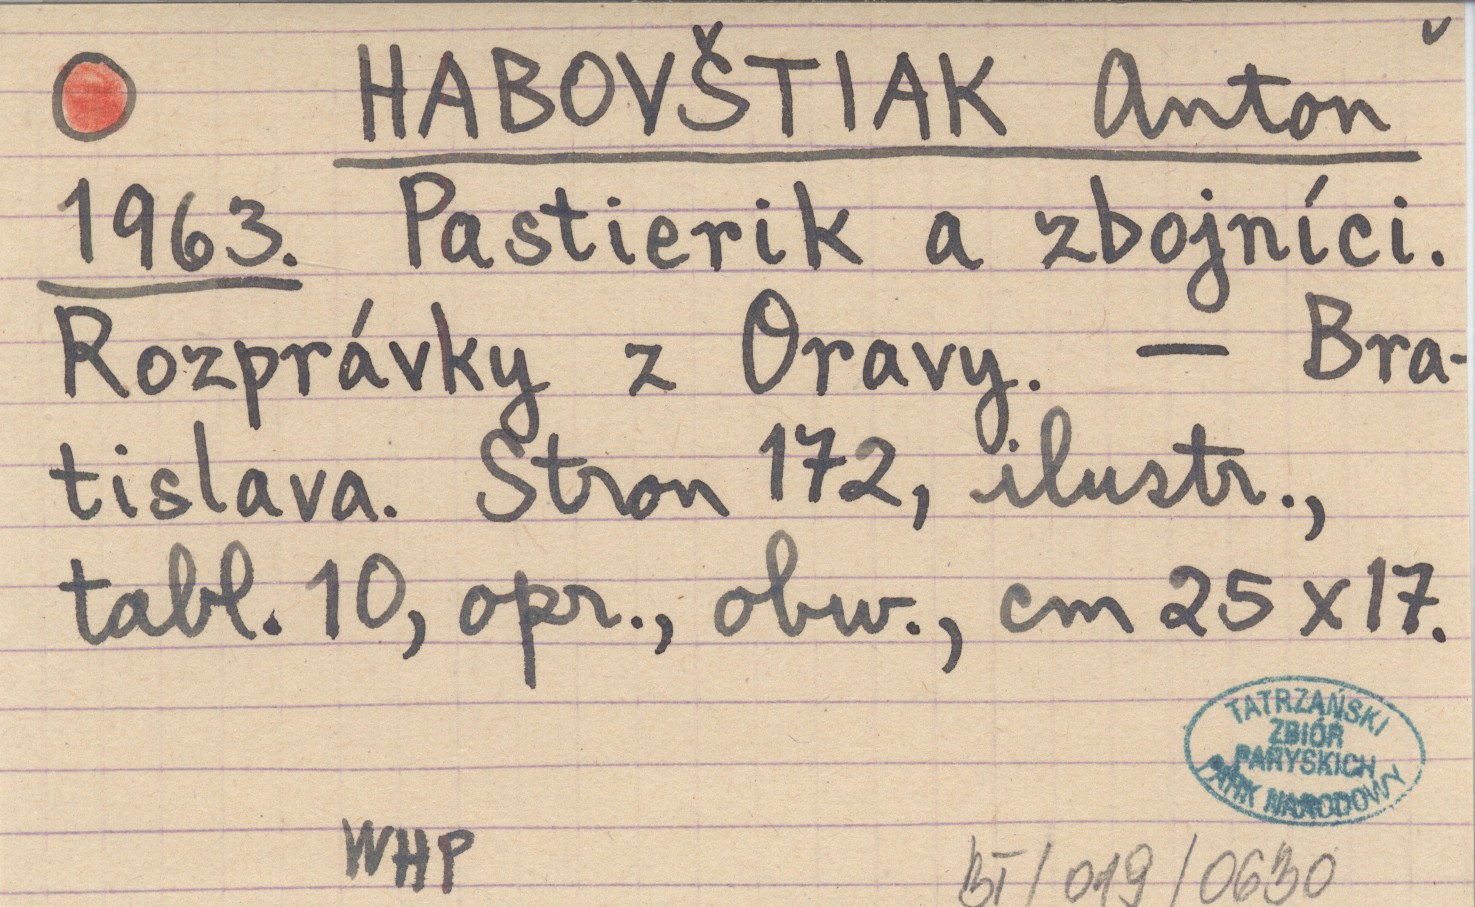 HABOVŠTIAK Anton
1963. Pastierik a zbojníci.
Rozprávky z Oravy. — Bra-
tislava. Stron 172, ilustr.,
tabl. 10, opr., obw., cm 25 x 17.
TATRZAŃSKI
ZBIÓR
PARYSKICH
PARK NARODOWY
WHP
BT/019/0630